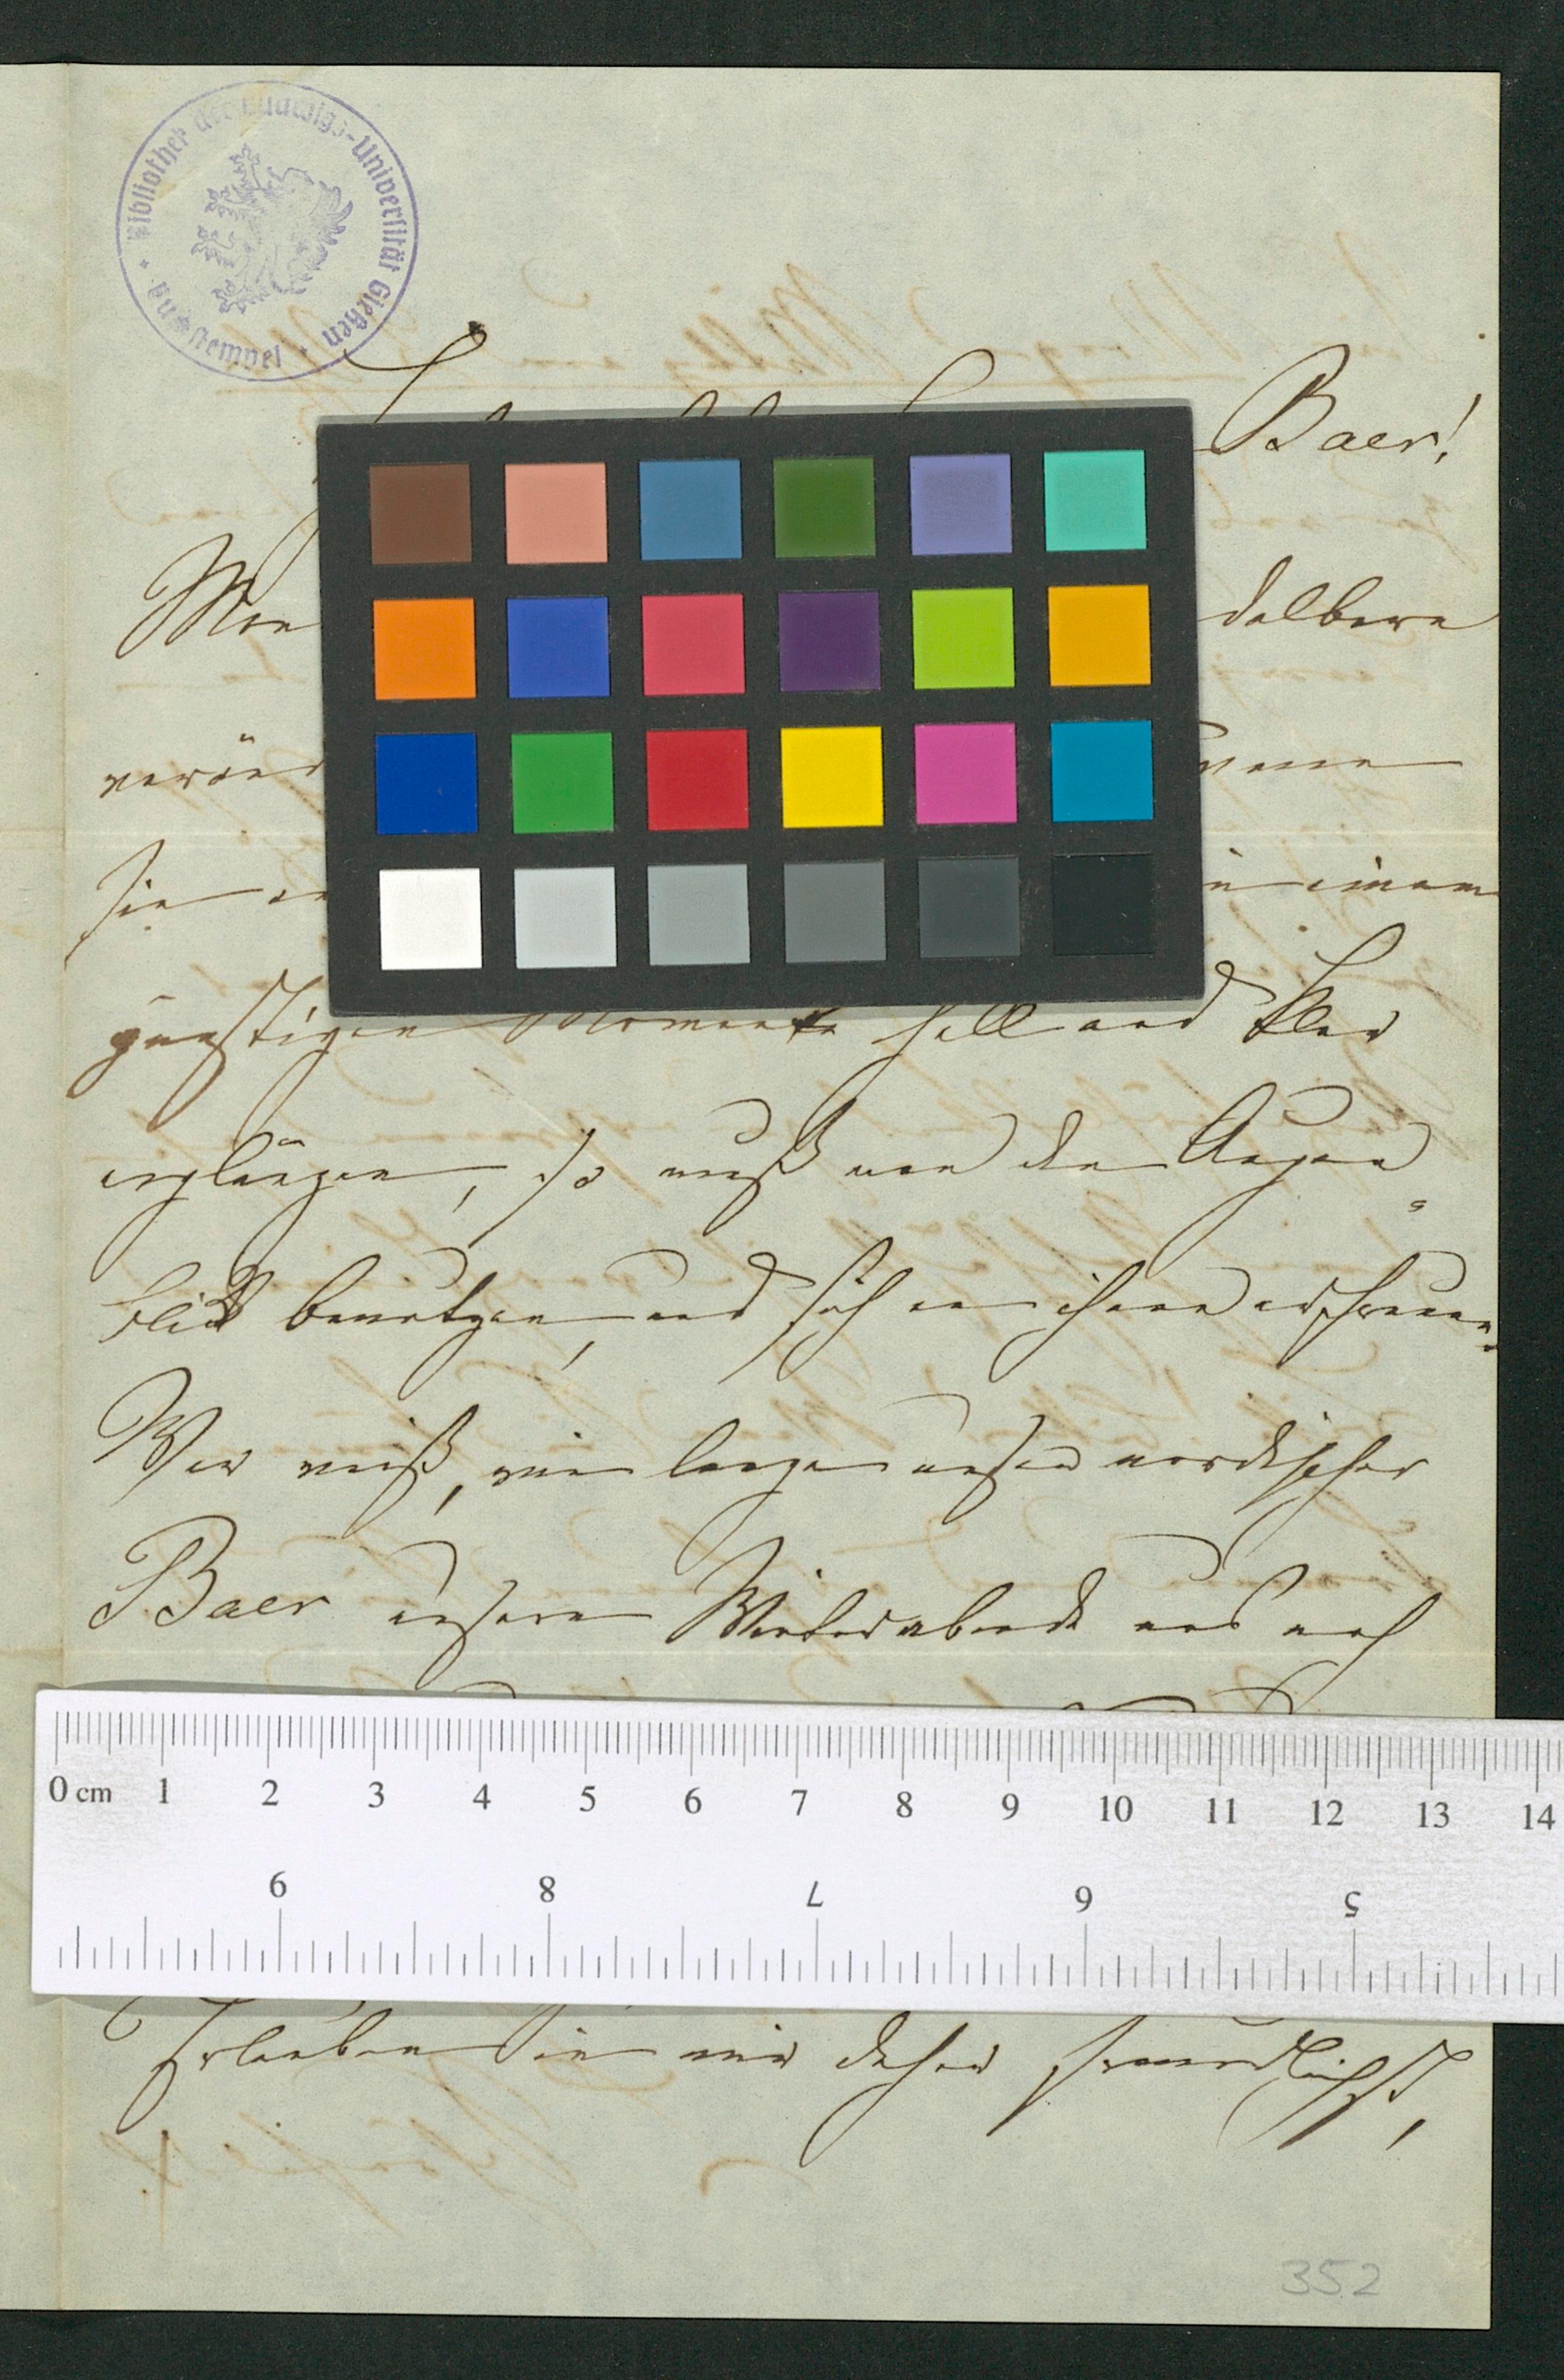 Bibliothek der Ludwigs-Universität Gießen
Baer!
delbare
sie
in einem
günstigen Momente hell und klar
erglänzen, so muß man den Augen=
blick benutzen, und sich an ihnen erfreuen.
Wer weiß, wie lange unser nordischer
Baer unsere Winterabende uns noch
0 cm 1 2 3 4 5 6 7 8 9 10 11 12 13 14
9 8 7 6 5
Erlauben Sie mir daher freundlichst,
352